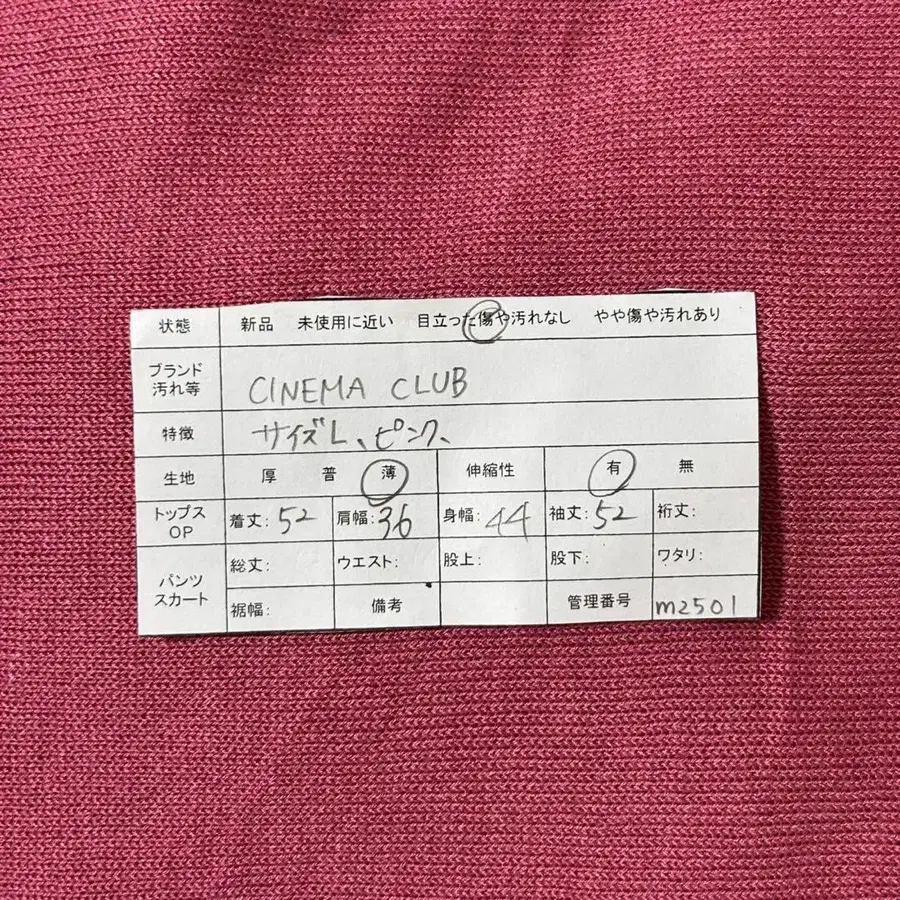 状態 新品 未使用に近い 目立った傷や汚れなし やや傷や汚れあり
ブランド
汚れ等 CINEMA CLUB
特徴 サイズL、ピンク、
生地 厚 普 薄 伸縮性 有 無
トップス
OP 着丈:52 肩幅:36 身幅:44 袖丈:52 裄丈:
パンツ
スカート 総丈: ウエスト: 股上: 股下: ワタリ:
裾幅: 備考 管理番号 m2501